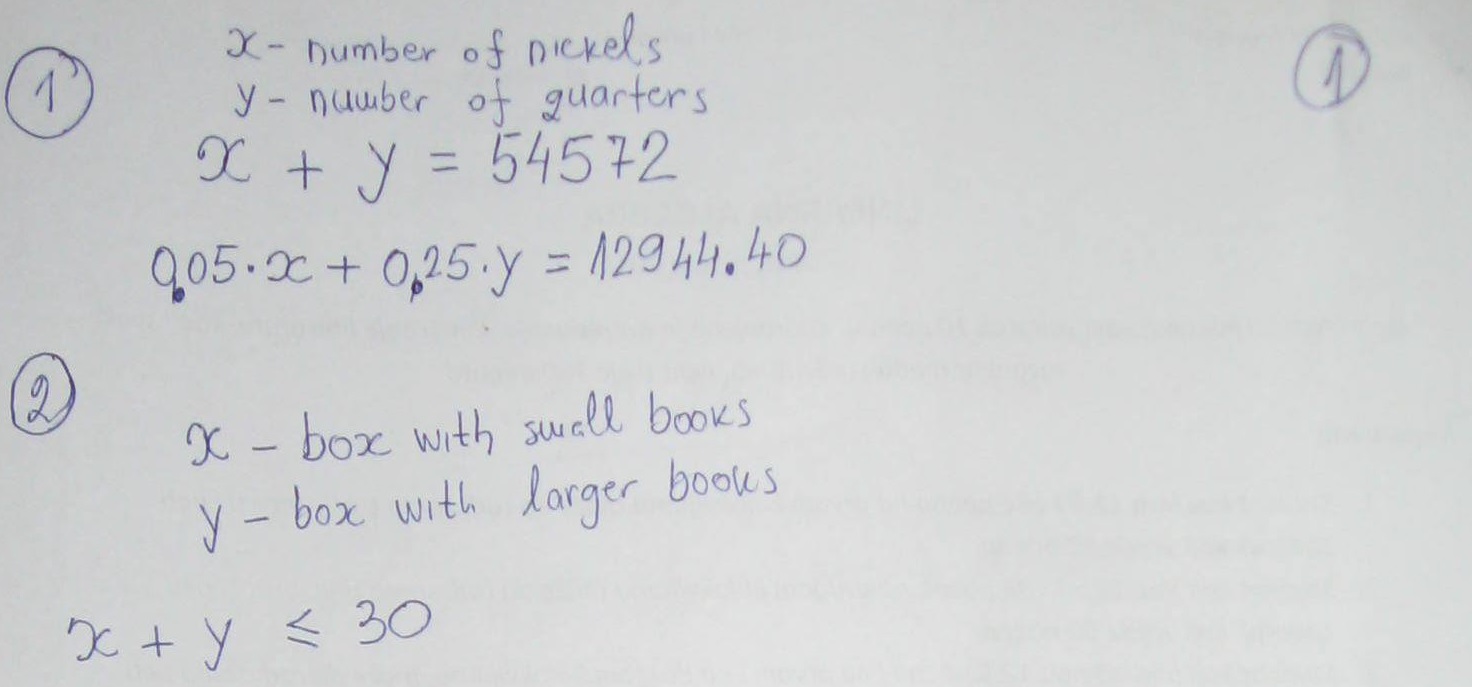 1
x - number of nickels
1
y - number of quarters
x + y = 54572
0.05 · x + 0.25 · y = 12944.40
2
x - box with small books
y - box with larger books
x + y ≤ 30